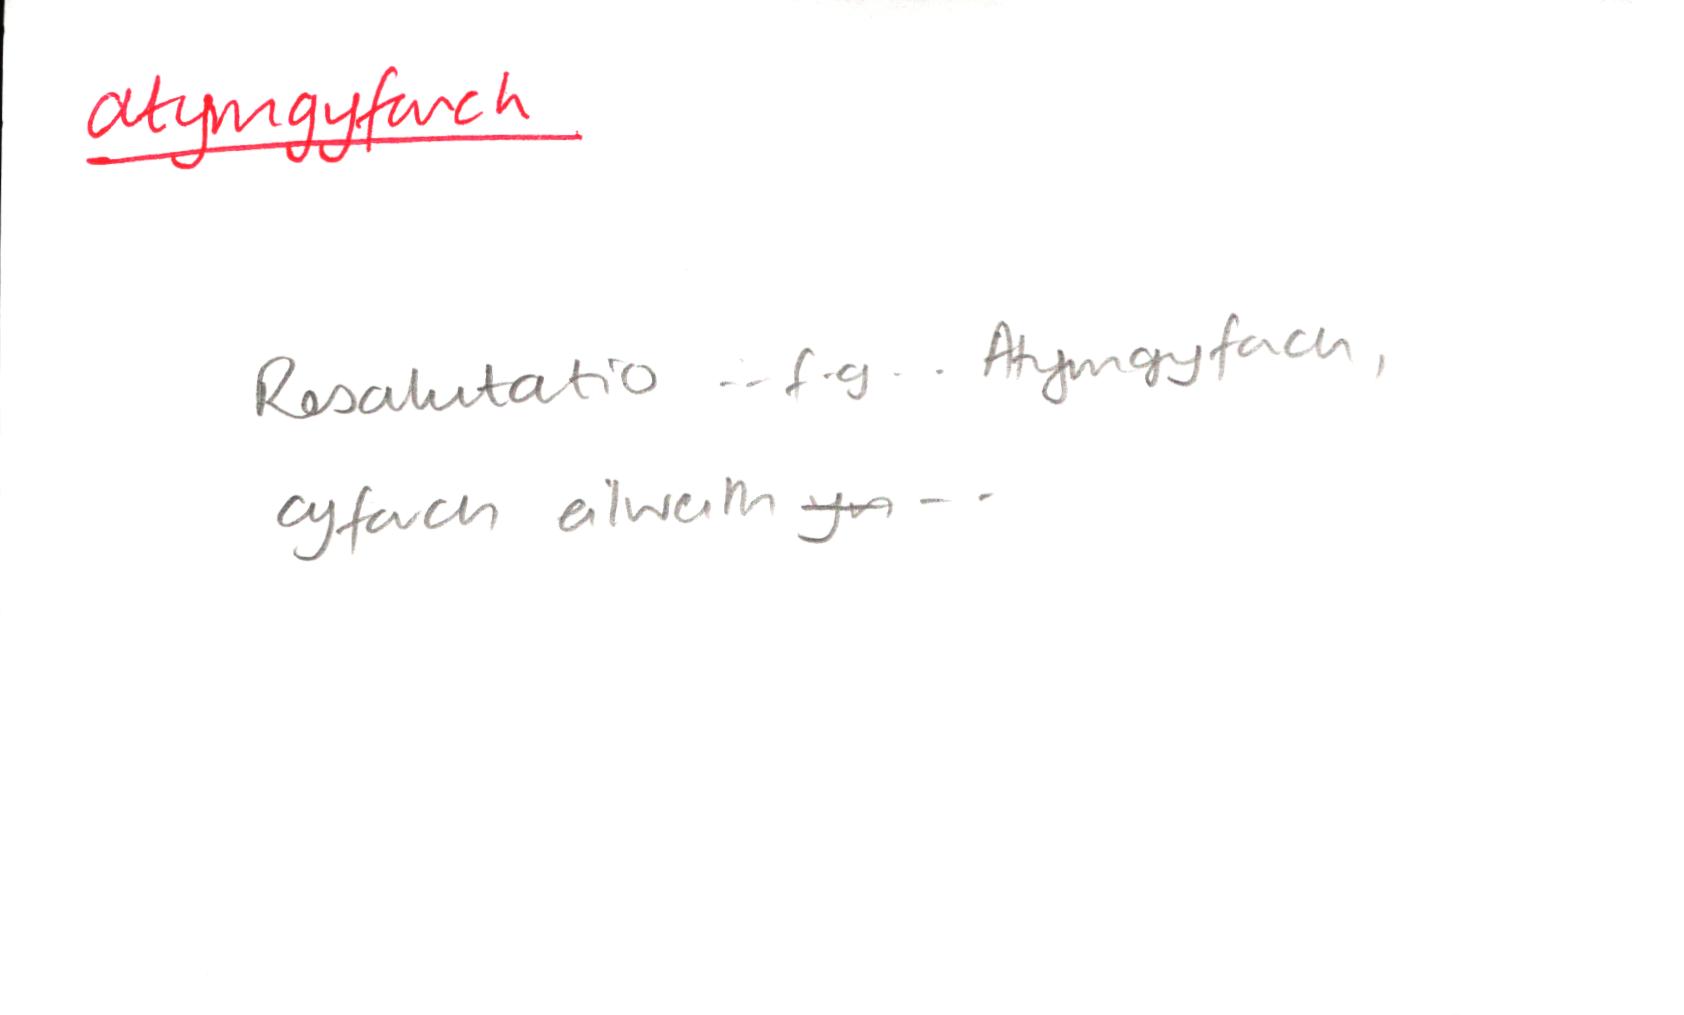 atymgyfarch
Resalutatio --- f.g... Atymgyfarch,
cyfarch eilwaith yn - -